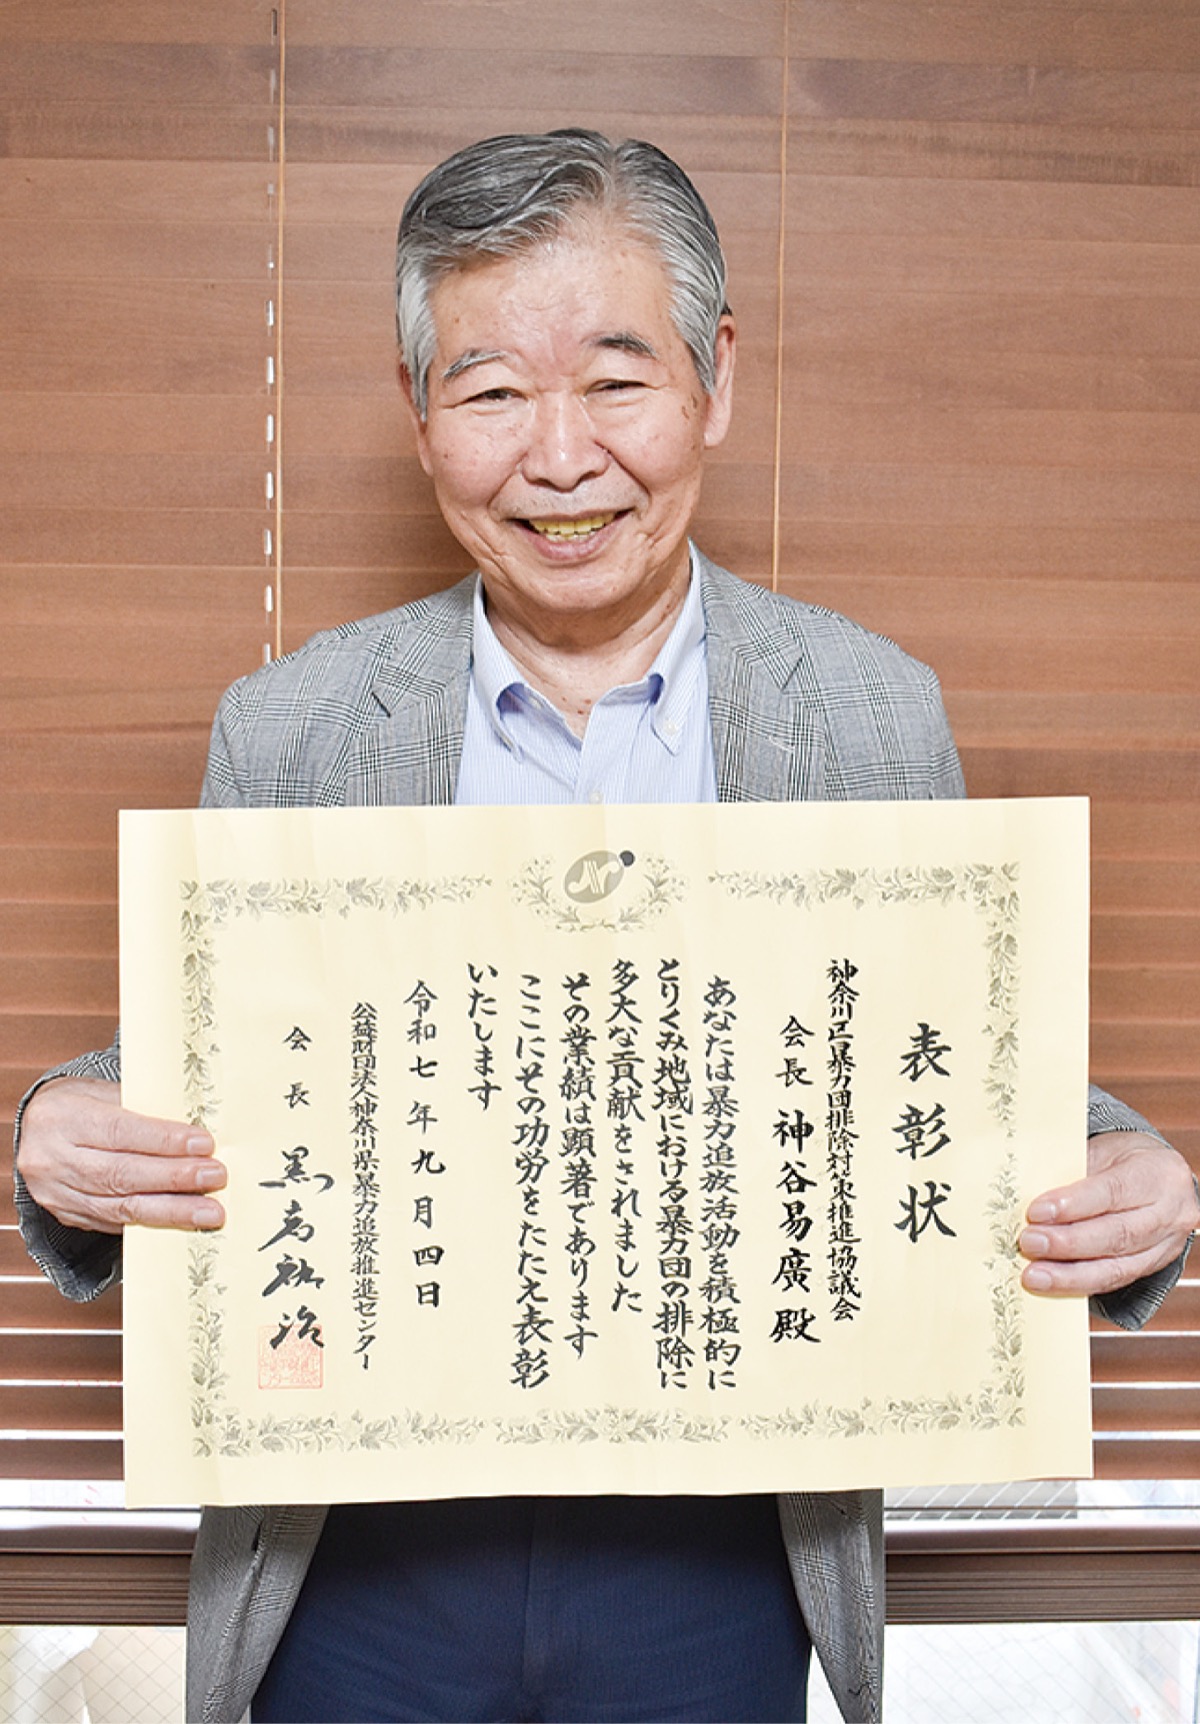 表彰状
神奈川区暴力団排除対策推進協議会
会長 神谷易廣殿
あなたは暴力追放活動を積極的に
とりくみ地域における暴力団の排除に
多大な貢献をされました
その業績は顕著であります
ここにその功労をたたえ表彰
いたします
令和七年九月四日
公益財団法人神奈川県暴力追放推進センター
会長